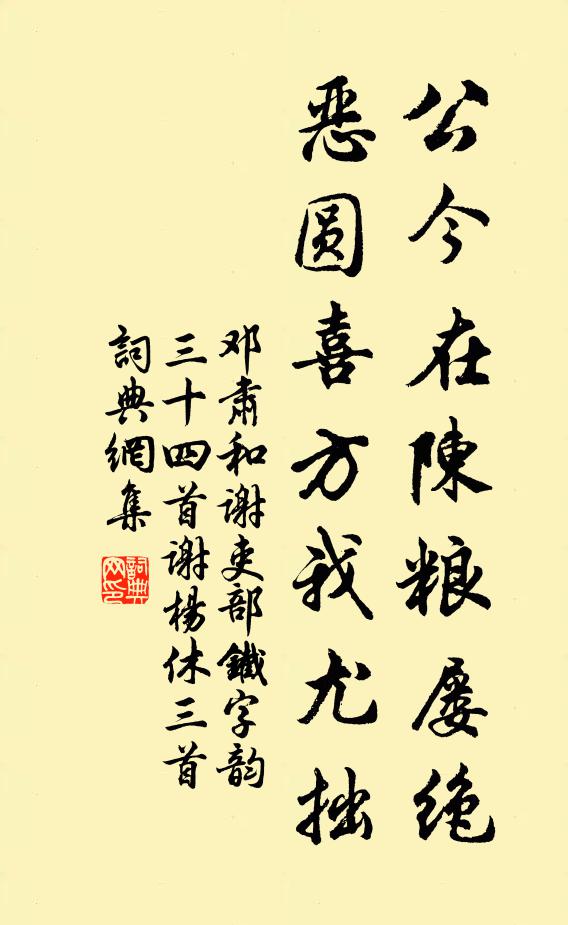 公今在陳粮屡絶
惡圓喜方我尤拙
邓肅和谢吏部鐵字韵
三十四首谢楊休三首
詞典網集
詞典
网印